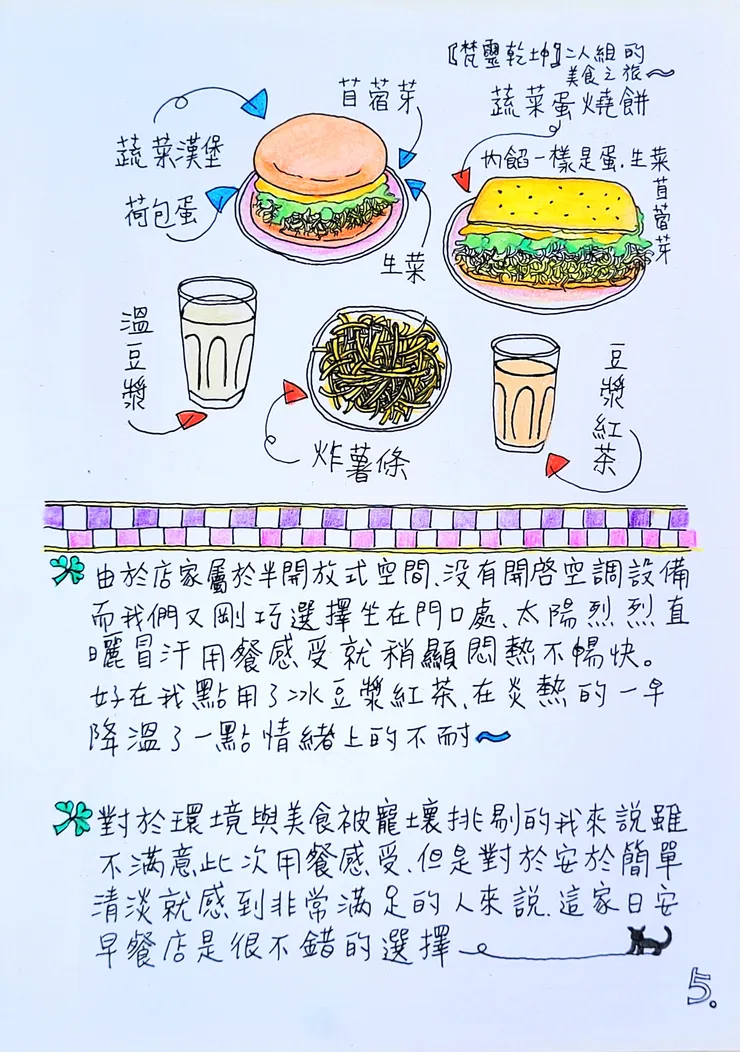 〖梵靈乾坤〗二人組的
美食之旅～
蔬菜蛋燒餅
內餡一樣是蛋、生菜
苜蓿芽
苜蓿芽
蔬菜漢堡
荷包蛋
生菜
溫豆漿
炸薯條
豆漿紅茶
由於店家屬於半開放式空間、沒有開啓空調設備
而我們又剛巧選擇坐在門口處、太陽烈烈直
曬冒汗用餐感受就稍顯悶熱不暢快。
好在我點用了冰豆漿紅茶、在炎熱的一早
降溫了一點情緒上的不耐～
對於環境與美食被寵壞挑剔的我來說雖
不滿意此次用餐感受、但是對於安於簡單
清淡就感到非常滿足的人來說、這家日安
早餐店是很不錯的選擇
5。